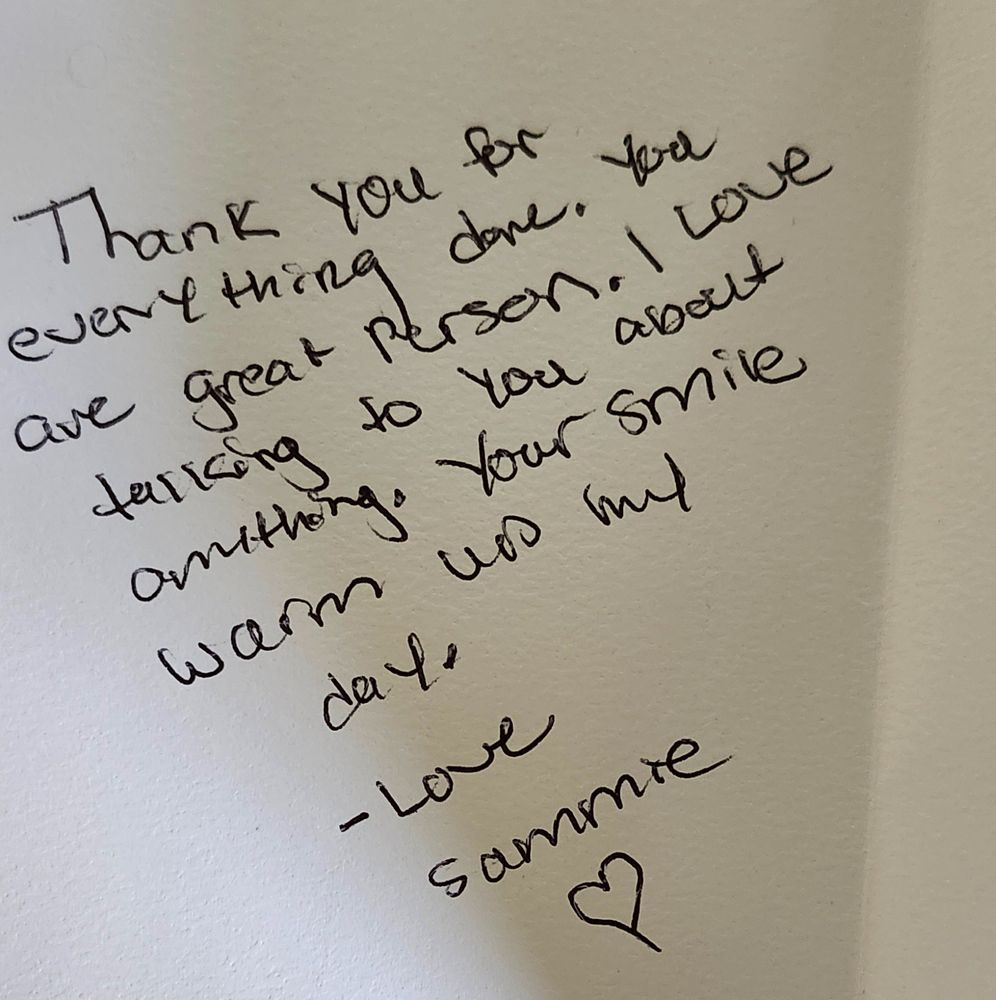 Thank you for
everything done. You
are great Person. I Love
talking to you about
anything. Your smile
warm up my
day.
- Love
Sammie
♡